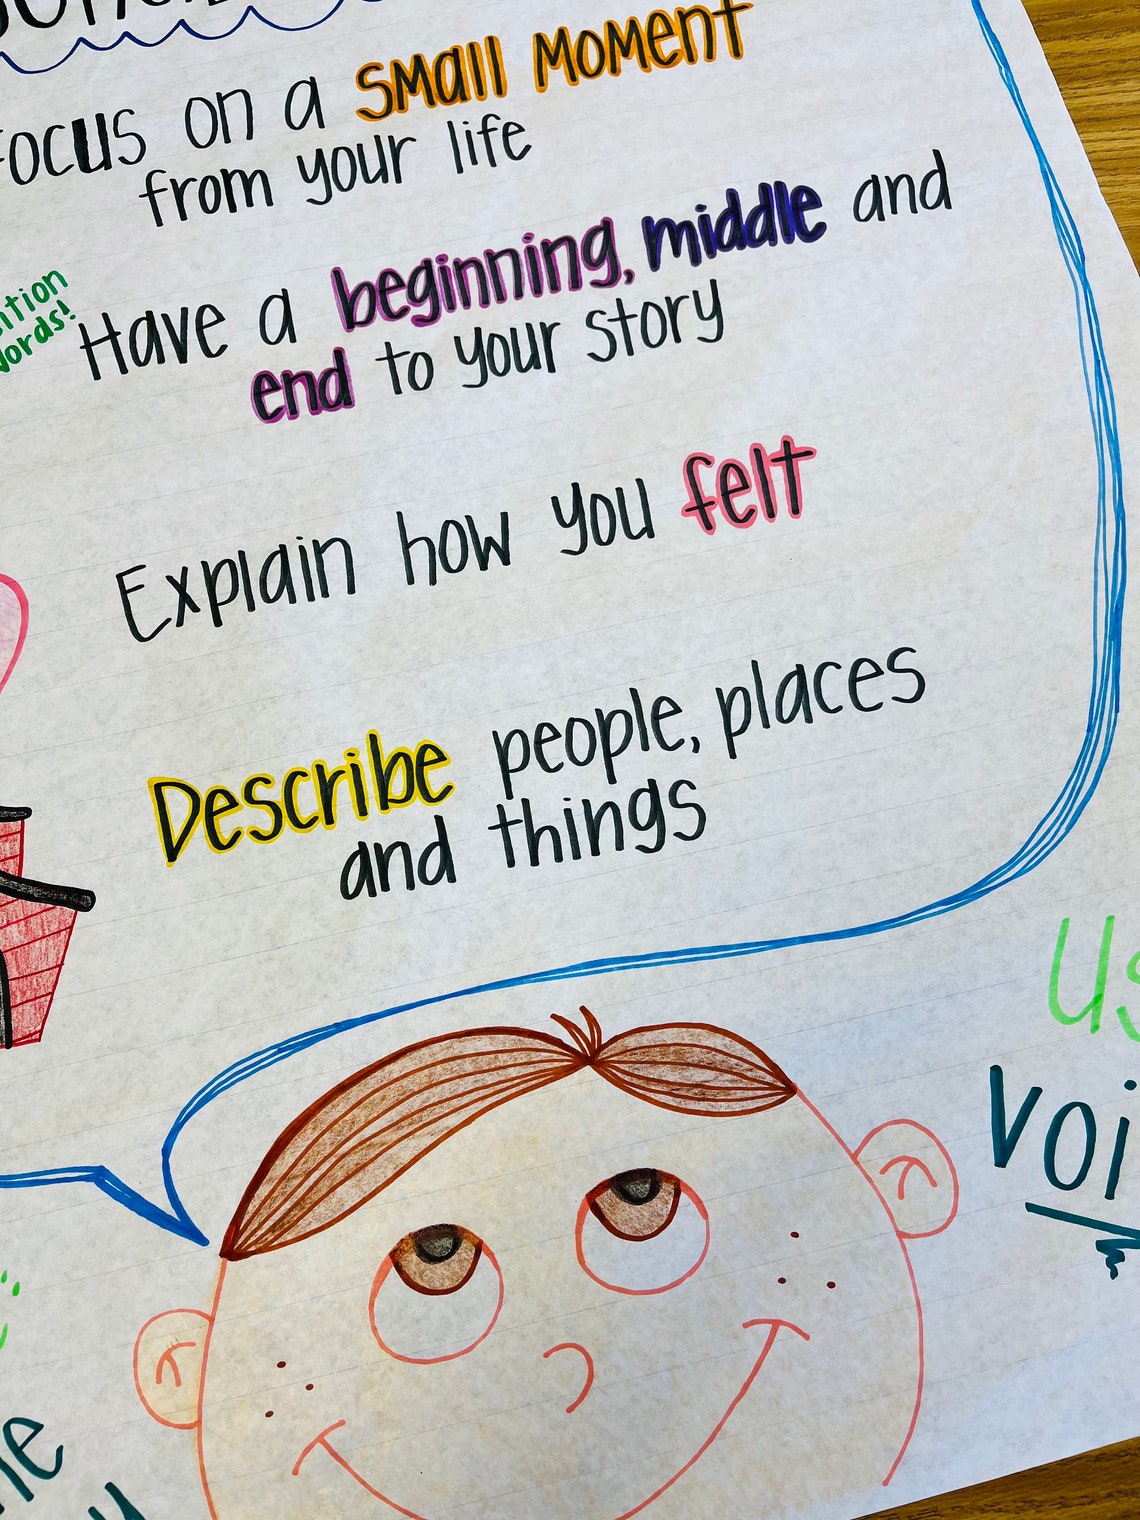 Focus on a small moment
from your life
Have a beginning, middle and
end to your story
Explain how you felt
Describe people, places
and things